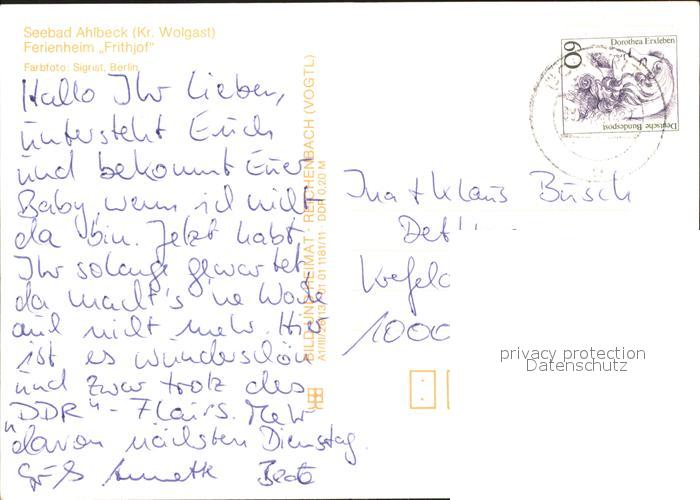 Seebad Ahlbeck (Kr. Wolgast)
Ferienheim „Frithjof“
Farbfoto: Sigrist, Berlin
Hallo Ihr Lieben,
untersteht Euch
und bekommt Euer
Baby, wenn ich nicht
da bin. Jetzt habt
Ihr solange gewartet
da macht's 'ne Woche
auch nicht mehr. Hier
ist es wunderschön
und zwar trotz des
"DDR" - Flairs. Mehr
davon nächsten Dienstag.
Gruß Annette Beate
BILD UND HEIMAT · REICHENBACH (VOGTL)
A1/III/26/13 01 01 1181/11 DDR 0,20 M
Dorothea Erxleben
60
Deutsche Bundespost
Ina + Klaus Busch
Krefeld
1000
privacy protection
Datenschutz